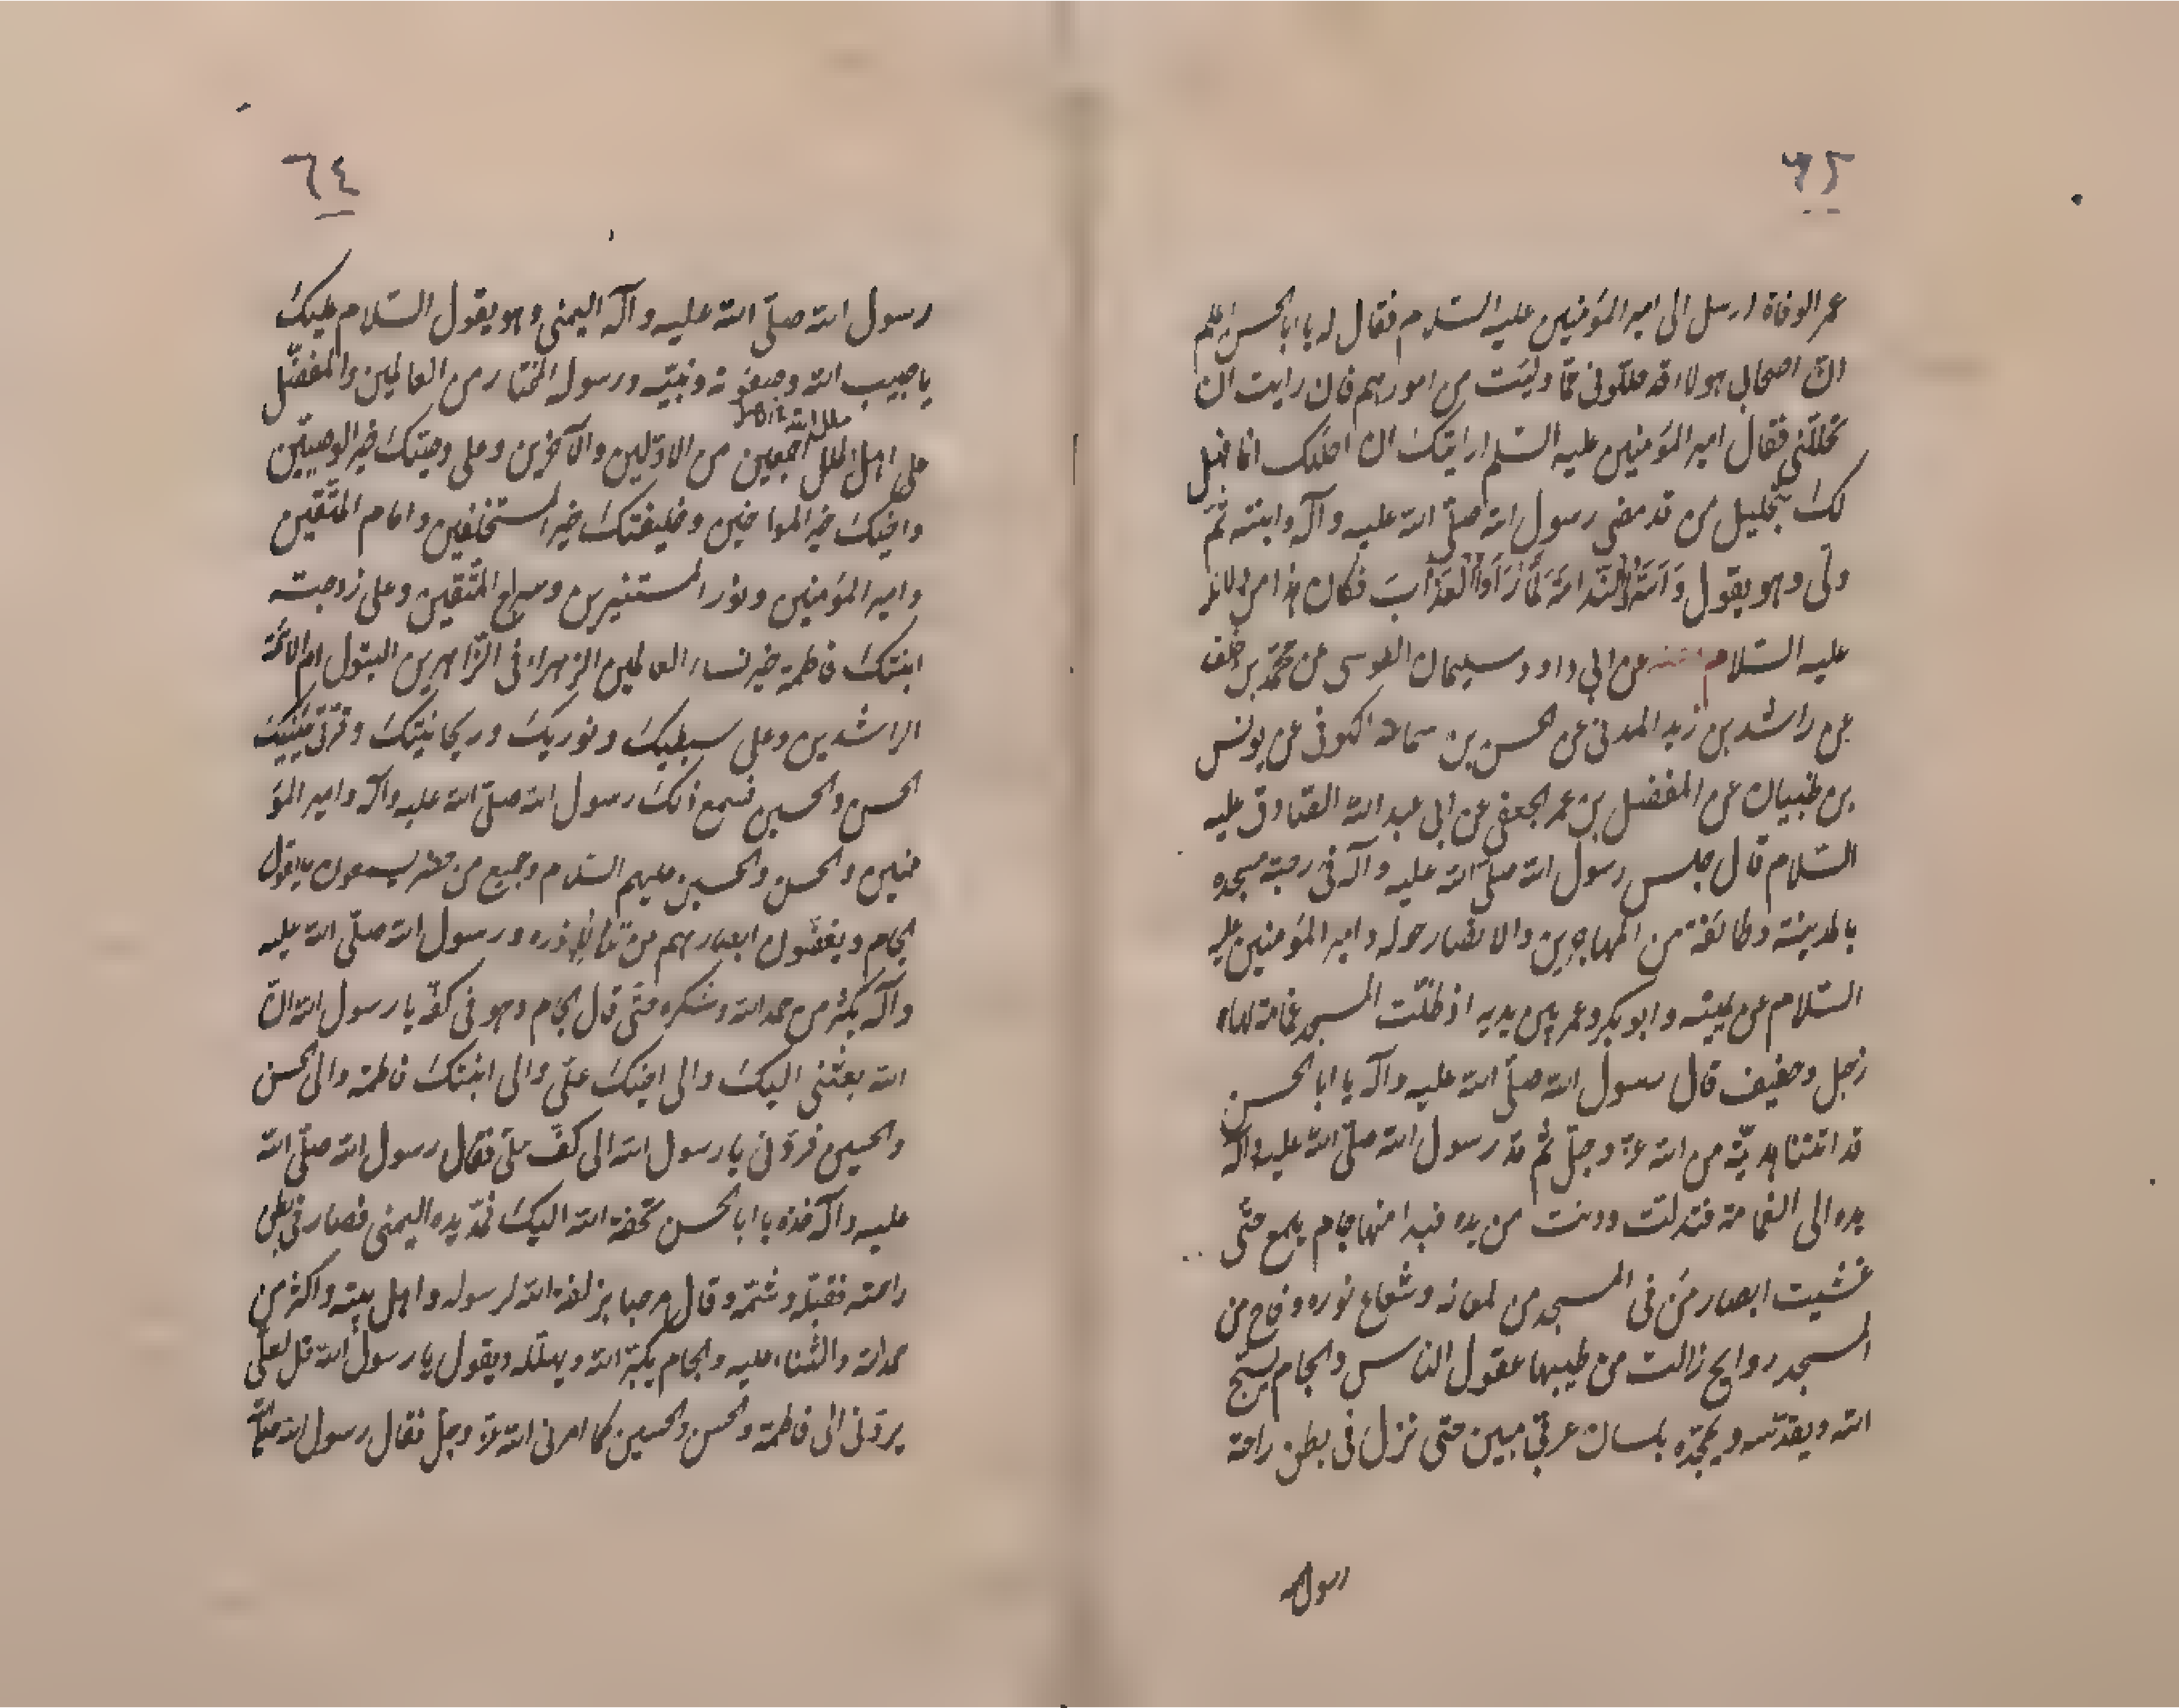 ٦٣
عمر الوفاة ارسل الى امير المؤمنين عليه السّلام فقال له يا ابا الحسن اعلم
انّ اصحابى هولاء قد حللّونى ممّا وليت من امورهم فان رايت ان
تحللّنى فقال امير المؤمنين عليه السّلم ارايتك ان احلّلك انا فهل
لك بتحليل من قد مضى رسول الله صلّى الله عليه وآله وابنته ثمّ
ولّى وهو يقول وَاَسَرُّوا النَّدامَةَ لَمَّا رَاَوُا الْعَذابَ فكان هذا من دلائله
عليه السّلام وعنه عن ابى داود وسليمان الطوسى عن محمّد بن خلف
عن راشد بن زيد المدنى عن الحسن بن سماعة الكوفى عن يونس
بن ظبيان عن المفضل بن عمر الجعفى عن ابى عبد الله الصّادق عليه
السّلام قال جلس رسول الله صلّى الله عليه وآله فى رحبة مسجده
بالمدينة وطائفة من المهاجرين والانصار حوله وامير المؤمنين عليه
السّلام عن يمينه وابو بكر وعمر بين يديه اذ ظلّت المسجد غمامة لها
زجل وحفيف قال رسول الله صلّى الله عليه وآله يا ابا الحسن
قد اتتنا هديّة من الله عزّ وجلّ ثم مدّ رسول الله صلّى الله عليه وآله
يده الى الغمامة فتدلت ودنت من يده فبدا منها جام يلمع حتّى
غشيت ابصار من فى المسجد من لمعانه وشعاع نوره وفاح من
المسجد روايح زالت من طيبها عقول الناس والجام يسبّح
الله ويقدّسه ويمجّده بلسان عربّى مبين حتى نزل فى بطن راحة
رسول الله
٦٤
رسول الله صلّى الله عليه وآله اليمنى وهو يقول السّلام عليك
يا حبيب الله وصفوته ونبيّه ورسوله المختار من العالمين والمفضّل
على اهل الملل اجمعين من الاوّلين والآخرين وعلى وصيّك خير الوصيّين
واخيك خير المواخين وخليفتك خير المستخلفين وامام المتّقين
وامير المؤمنين ونور المستنيرين وسراج المتّقين وعلى زوجته
ابنتك فاطمة خير نساء العالمين الزهراء فى الزّاهرين البتول ام الائمّة
الراشدين وعلى سبطيك ونوريك وريحانيتك وقرّتى عينيك
الحسن والحسين فسمع ذلك رسول الله صلّى الله عليه وآله وامير المؤ
منين والحسن والحسين عليهم السّلام وجميع من حضر يسمعون ما يقول
الجام ويغضّون ابصارهم من تلألؤ نوره ورسول الله صلّى الله عليه
وآله يكثر من حمد الله وشكره حتّى قال الجام وهو فى كفّه يا رسول الله انّ
الله بعثنى اليك والى اخيك علىّ والى ابنتك فاطمة والى الحسن
والحسين فردّنى يا رسول الله الى كفّ علىّ فقال رسول الله صلّى الله
عليه وآله خذه يا ابا الحسن تحفة الله اليك فمدّ يده اليمنى فصار فى بطن
راحته فقبّله وشمّه وقال مرحبا بزلفة الله لرسوله واهل بيته واكثر من
حمد الله والثّناء عليه والجام يكبّر الله ويهلّله ويقول يا رسول الله قل لعلىّ
يردّنى الى فاطمة والحسن والحسين كما امرنى الله عزّ وجلّ فقال رسول الله صلّى الله